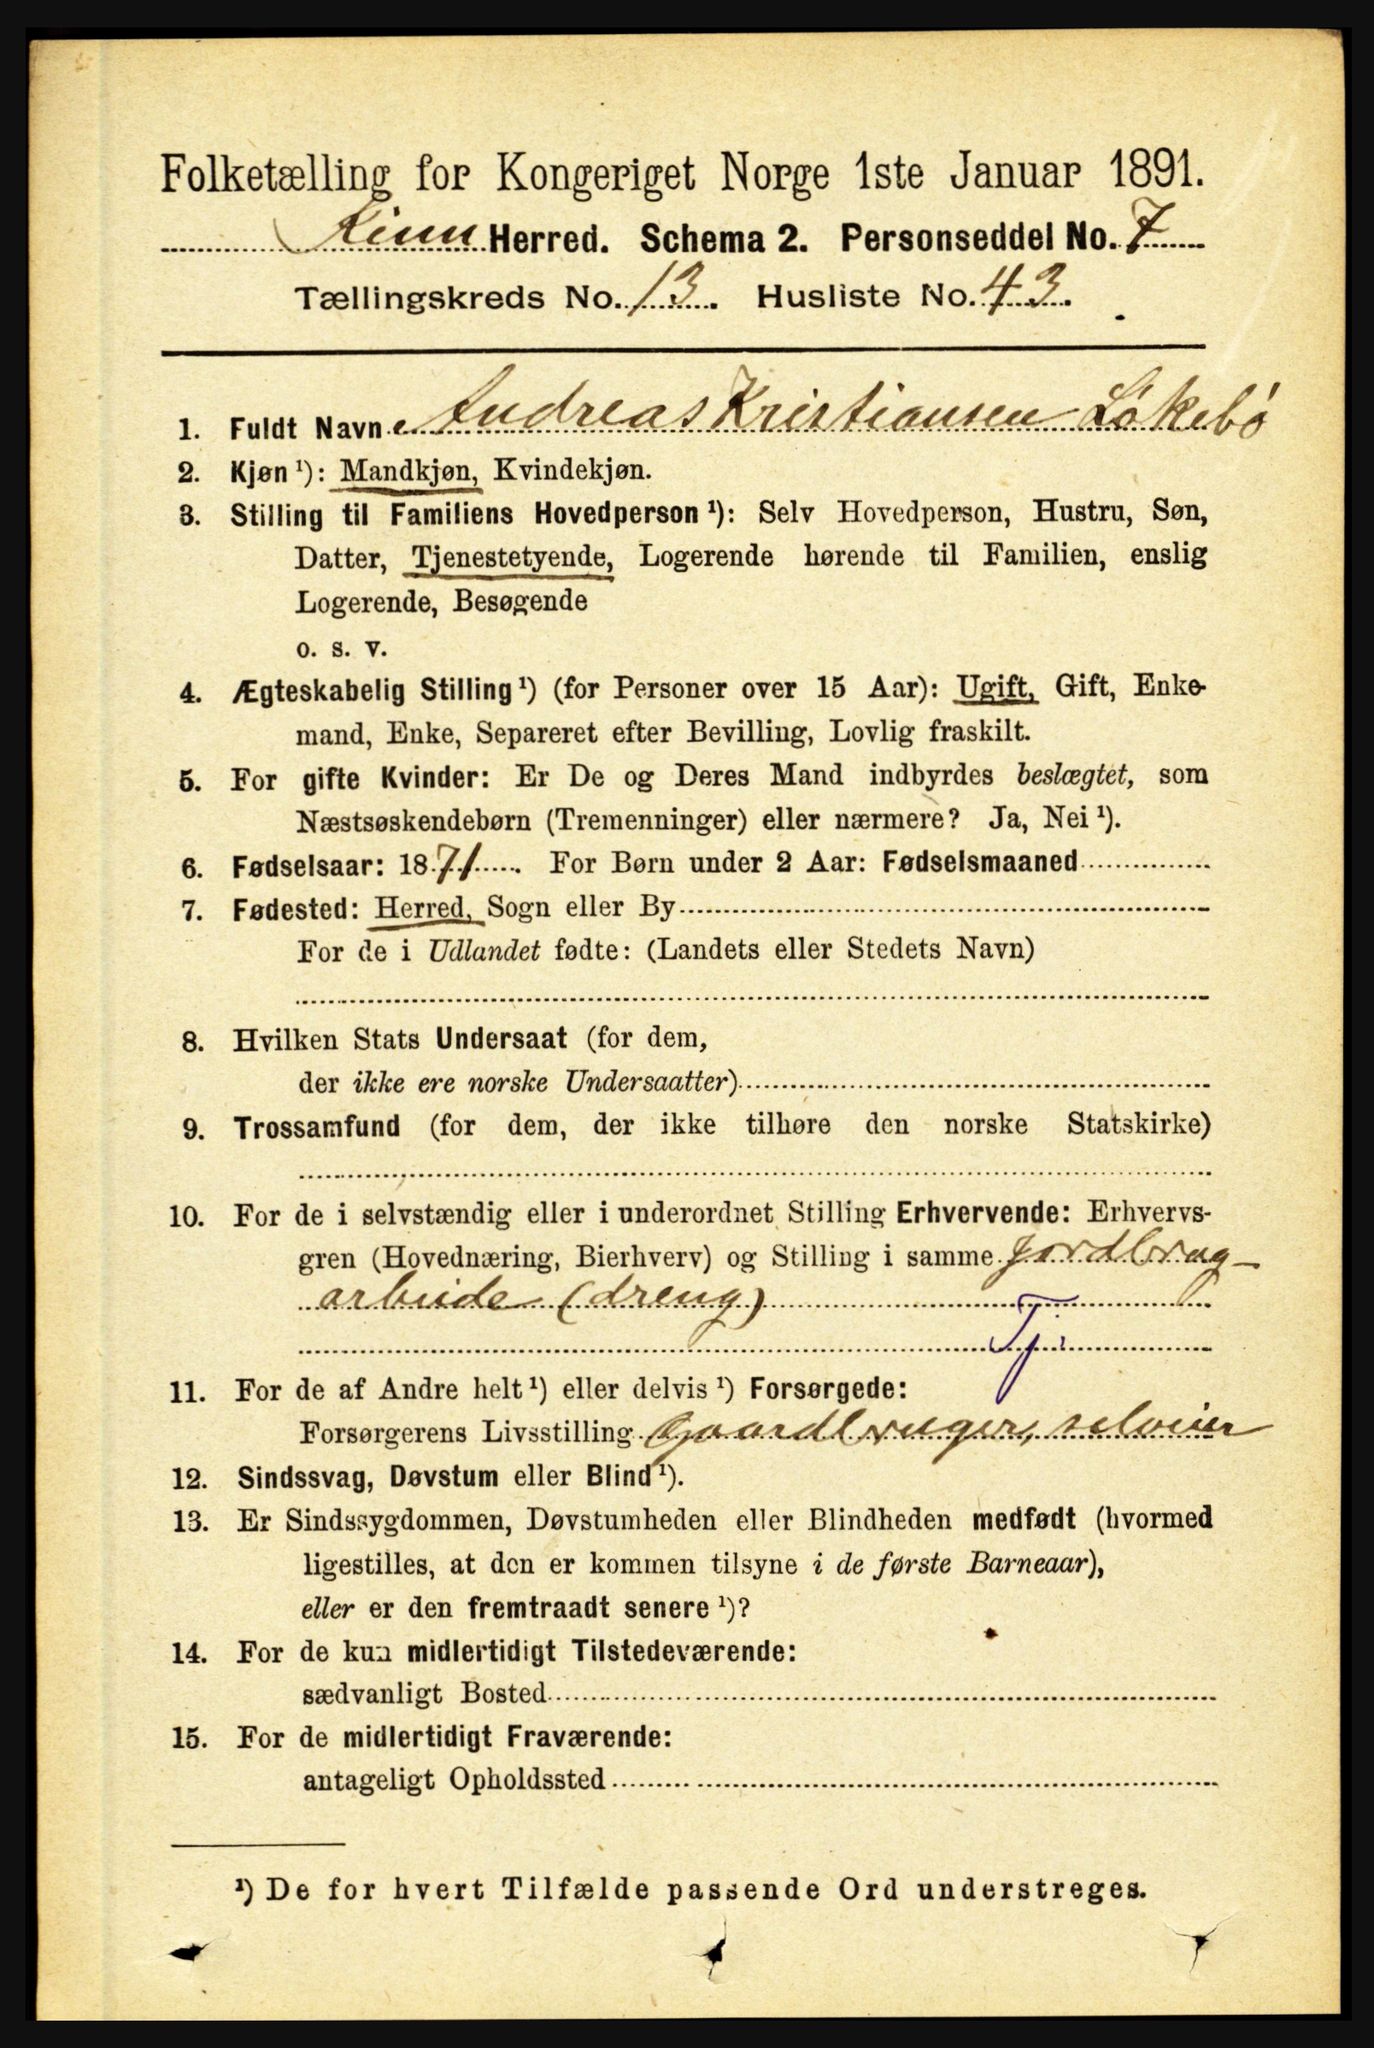 Folketælling for Kongeriget Norge 1ste Januar 1891.
Kinn Herred. Schema 2. Personseddel No. 7
Tællingskreds No. 13. Husliste No. 43.
1. Fuldt Navn Andreas Kristiansen Løkebø
2. Kjøn ¹): Mandkjøn, Kvindekjøn.
3. Stilling til Familiens Hovedperson ¹): Selv Hovedperson, Hustru, Søn,
Datter, Tjenestetyende, Logerende hørende til Familien, enslig
Logerende, Besøgende
o. s. v.
4. Ægteskabelig Stilling ¹) (for Personer over 15 Aar): Ugift, Gift, Enke-
mand, Enke, Separeret efter Bevilling, Lovlig fraskilt.
5. For gifte Kvinder: Er De og Deres Mand indbyrdes beslægtet, som
Næstsøskendebørn (Tremenninger) eller nærmere? Ja, Nei ¹).
6. Fødselsaar: 1871. For Børn under 2 Aar: Fødselsmaaned
7. Fødested: Herred, Sogn eller By
For de i Udlandet fødte: (Landets eller Stedets Navn)
8. Hvilken Stats Undersaat (for dem,
der ikke ere norske Undersaatter)
9. Trossamfund (for dem, der ikke tilhøre den norske Statskirke)
10. For de i selvstændig eller i underordnet Stilling Erhvervende: Erhvervs-
gren (Hovednæring, Bierhverv) og Stilling i samme Jordbrug-
arbeide (dreng)
Tj.
11. For de af Andre helt ¹) eller delvis ¹) Forsørgede:
Forsørgerens Livsstilling Gaardbruger, selveier
12. Sindssvag, Døvstum eller Blind ¹).
13. Er Sindssygdommen, Døvstumheden eller Blindheden medfødt (hvormed
ligestilles, at den er kommen tilsyne i de første Barneaar),
eller er den fremtraadt senere ¹)?
14. For de kun midlertidigt Tilstedeværende:
sædvanligt Bosted
15. For de midlertidigt Fraværende:
antageligt Opholdssted
¹) De for hvert Tilfælde passende Ord understreges.